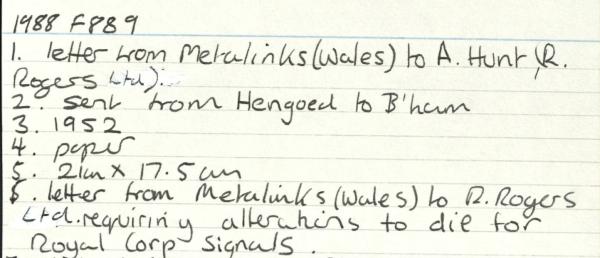 1988 F889
1. letter from Metalinks (Wales) to A. Hunt (R.
Rogers Ltd).
2. sent from Hengoed to B'ham
3. 1952
4. paper
5. 21cm x 17.5cm
6. letter from Metalinks (Wales) to R. Rogers
Ltd. requiring alterations to die for
Royal Corp Signals.